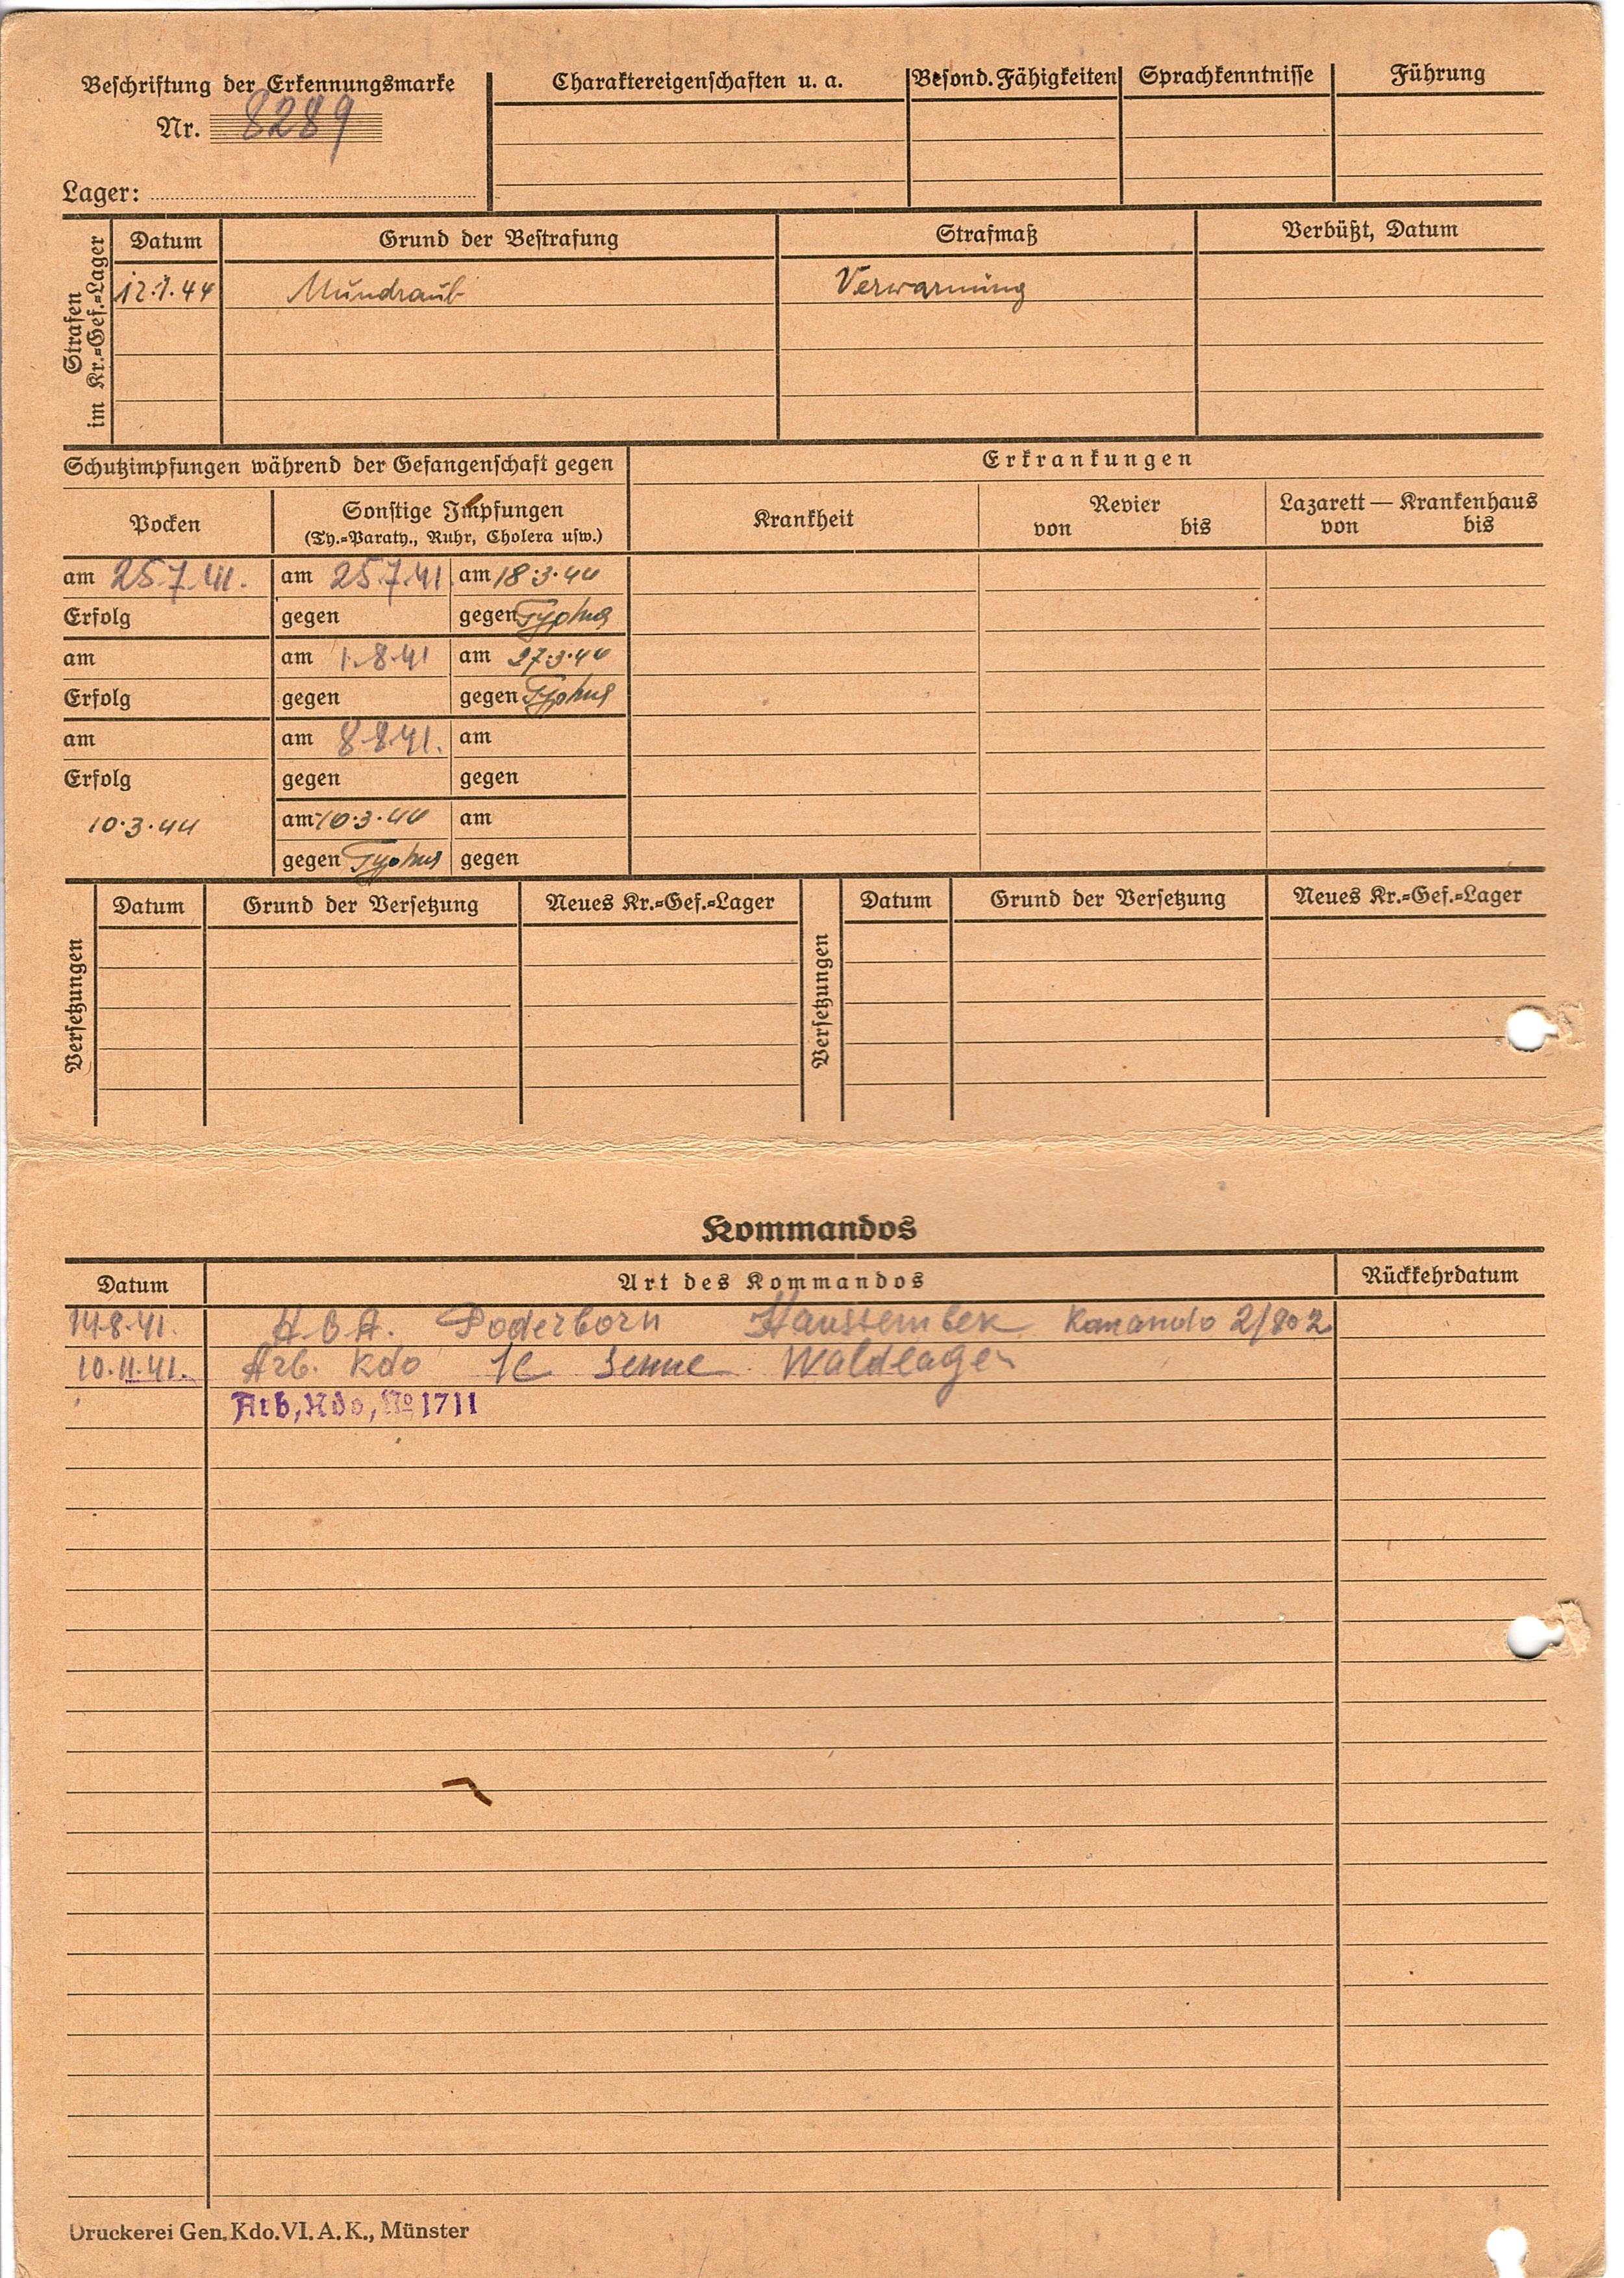 Beschriftung der Erkennungsmarke
Nr. 8289
Lager:
Charaktereigenschaften u. a.
Besond. Fähigkeiten
Sprachkenntnisse
Führung
Strafen
im Kr.=Gef.=Lager
Datum
Grund der Bestrafung
Strafmaß
Verbüßt, Datum
12.7.44
Mundraub
Verwarnung
Schutzimpfungen während der Gefangenschaft gegen
Erkrankungen
Pocken
Sonstige Impfungen
(Ty.=Paraty., Ruhr, Cholera usw.)
Krankheit
Revier
von bis
Lazarett — Krankenhaus
von bis
am 25.7.41. am 25.7.41. am 18.3.44
Erfolg gegen gegen Typhus
am am 1.8.41 am 27.3.44
Erfolg gegen gegen Typhus
am am 8.8.41. am
Erfolg gegen gegen
10.3.44 am 10.3.44 am
gegen Typhus gegen
Versetzungen
Datum
Grund der Versetzung
Neues Kr.=Gef.=Lager
Versetzungen
Datum
Grund der Versetzung
Neues Kr.=Gef.=Lager
Kommandos
Datum
Art des Kommandos
Rückkehrdatum
14.8.41. H.B.A. Poderborn Haustembek Komando 2/802
10.11.41. Arb. Kdo Senne Waldlager
Arb, Kdo, No 1711
Druckerei Gen. Kdo. VI. A. K., Münster